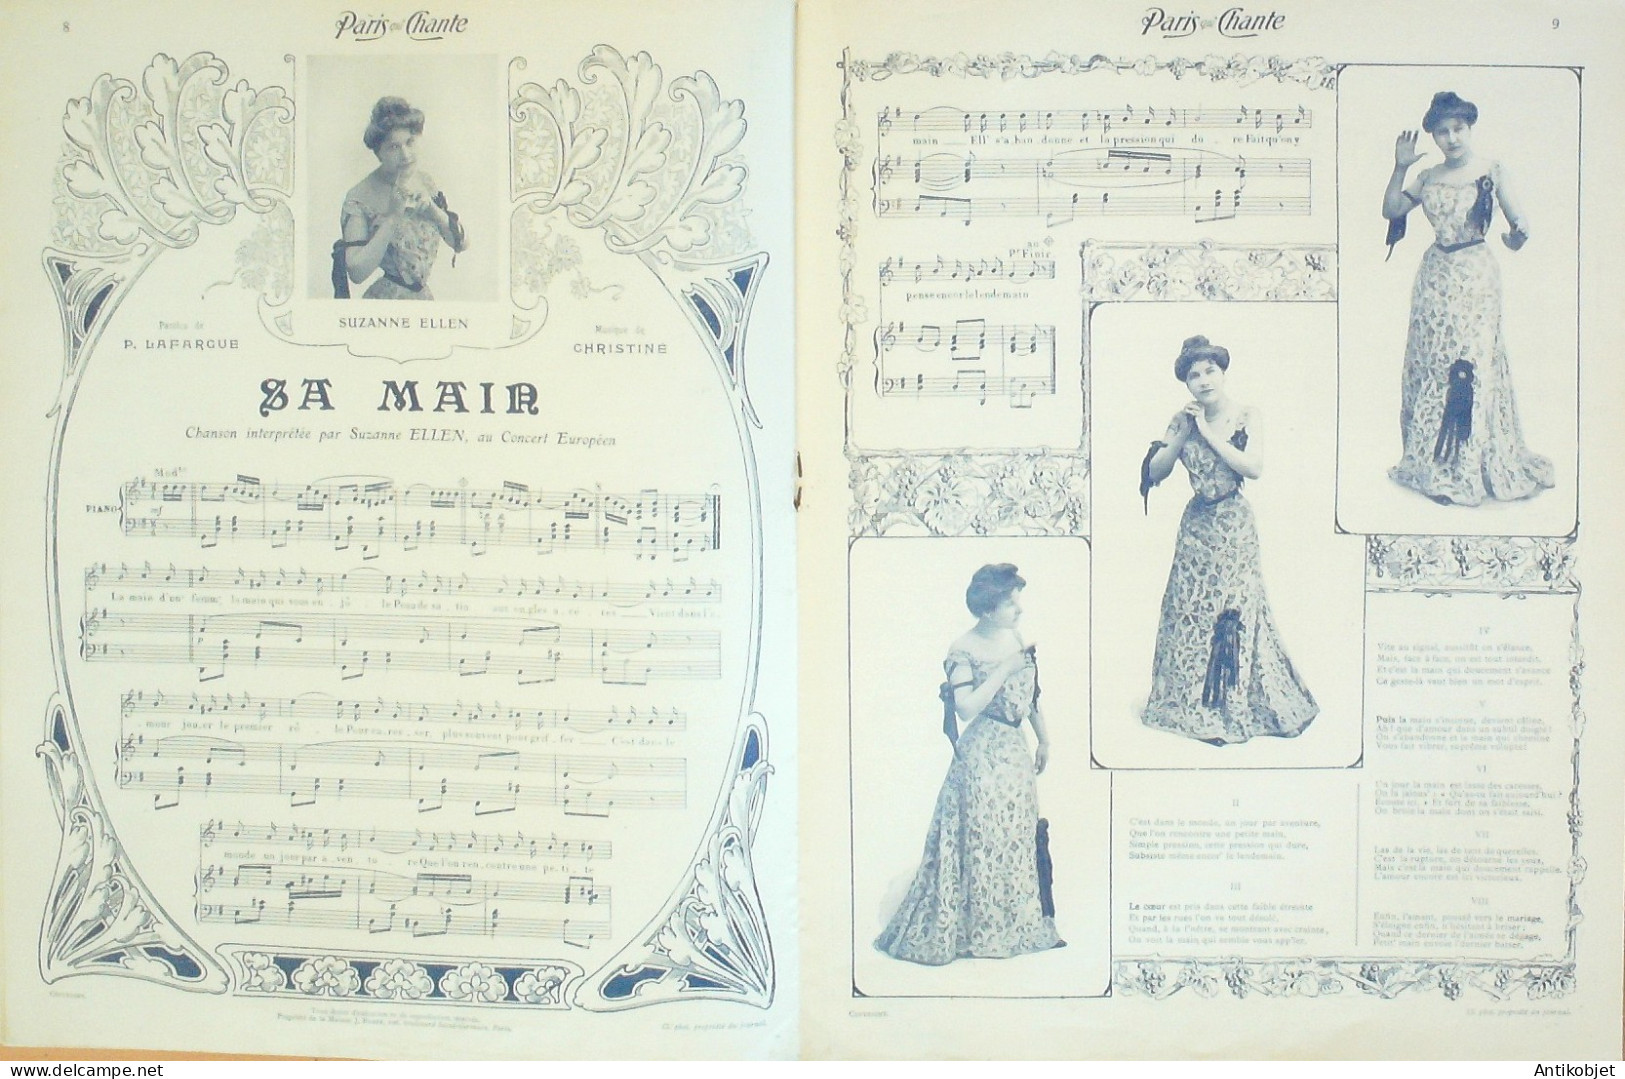 8
Paris qui Chante
SUZANNE ELLEN
Paroles de
P. LAFARGUE
Musique de
CHRISTINÉ
SA MAIN
Chanson interprétée par Suzanne ELLEN, au Concert Européen
Modto
PIANO
mf
La main d'un' femm' la main qui vous en . jô . le Peau de sa . tin
p
. mour jou.er le premier rô . le Pour ca . res . ser, plus souvent pour grif . fer C'est dans le
monde un jour par a . ven . tu . re Que l'on ren . contre une pe . ti . te
Tous droits d'exécution et de reproduction réservés.
Cl. phot. propriété du journal.
Paris qui Chante
9
main Ell' s'a.ban . donne et la pression qui du . re Fait qu'on y
au
Pr Finir
pense encor le lendemain
II
C'est dans le monde, un jour par aventure,
Que l'on rencontre une petite main,
Simple pression, cette pression qui dure,
Subsiste même encor' le lendemain.
III
Le cœur est pris dans cette faible étreinte
Et par les rues l'on va tout désolé,
Quand, à la f'nêtre, se montrant avec crainte,
On voit la main qui semble vous app'ler.
IV
Vite au signal, aussitôt on s'élance,
Mais, face à face, on est tout interdit,
Et c'est la main qui doucement s'avance
Ce geste-là vaut bien un mot d'esprit.
V
Puis la main s'incruste, devient câline,
Ah ! que d'amour dans un subtil doigté !
On s'abandonne et la main qui chemine
Vous fait vibrer, suprême volupté !
VI
Un jour la main est lasse des caresses,
VII
Las de la vie, las de tant de querelles,
C'est la rupture, on détourne les yeux,
Mais c'est la main qui doucement rappelle,
L'amour encore est ici victorieux.
VIII
Enfin, l'amant, poussé vers le mariage,
S'éloigne enfin, n'hésitant à briser ;
Petit' main envoie l'dernier baiser.
Cl. phot. propriété du journal.
Antikobjet